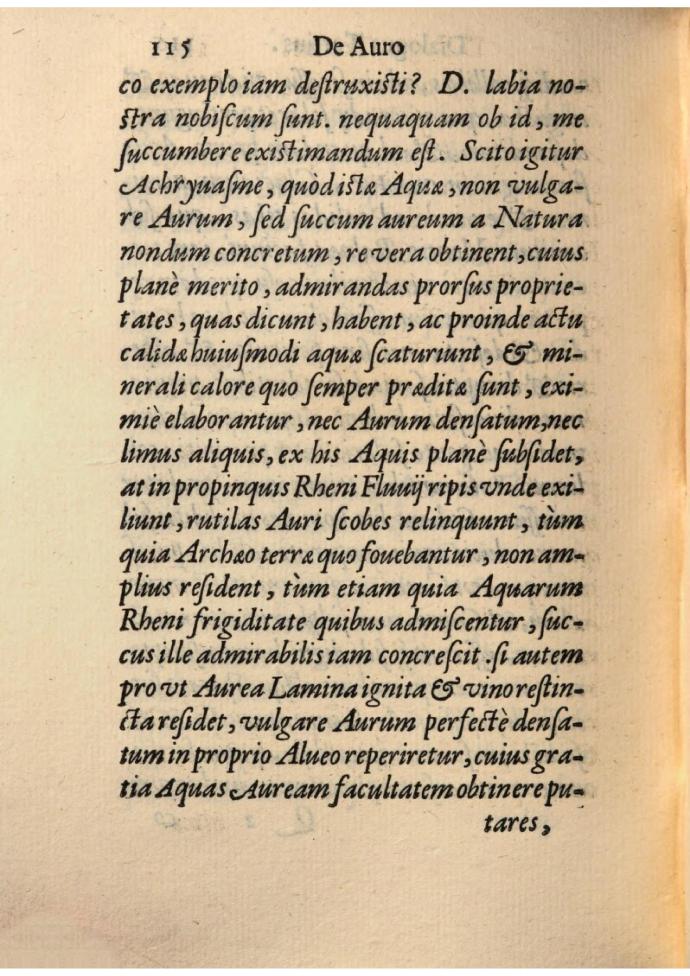 115 De Auro
co exemplo iam deſtruxiſti? D. labia no-
ſtra nobiſcum ſunt. nequaquam ob id, me
ſuccumbere exiſtimandum eſt. Scito igitur
Achryuaſme, quòd iſtæ Aquæ, non vulga-
re Aurum, ſed ſuccum aureum a Natura
nondum concretum, re vera obtinent, cuius
planè merito, admirandas prorſus proprie-
tates, quas dicunt, habent, ac proinde actu
calidæ huiuſmodi aquæ ſcaturiunt, & mi-
nerali calore quo ſemper præditæ ſunt, exi-
miè elaborantur, nec Aurum denſatum, nec
limus aliquis, ex his Aquis planè ſubſidet,
at in propinquis Rheni Fluuij ripis vnde exi-
liunt, rutilas Auri ſcobes relinquunt, tùm
quia Archæo terræ quo fouebantur, non am-
plius reſident, tùm etiam quia Aquarum
Rheni frigiditate quibus admiſcentur, ſuc-
cus ille admirabilis iam concreſcit. ſi autem
pro vt Aurea Lamina ignita & vino reſtin-
cta reſidet, vulgare Aurum perfectè denſa-
tum in proprio Alueo reperiretur, cuius gra-
tia Aquas Auream facultatem obtinere pu-
tares,